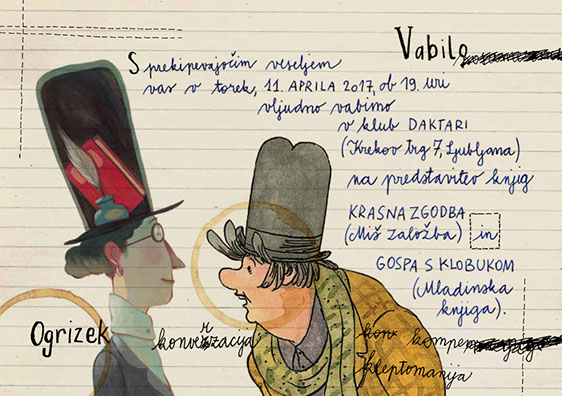 Vabilo
S prekipevajočim veseljem
vas v torek, 11. APRILA 2017, ob 19. uri
vljudno vabimo
v klub DAKTARI
(Krekov trg 7, Ljubljana)
na predstavitev knjig
KRASNA ZGODBA
(Miš založba) in
GOSPA S KLOBUKOM
(Mladinska
knjiga).
Ogrizek
kleptomanija